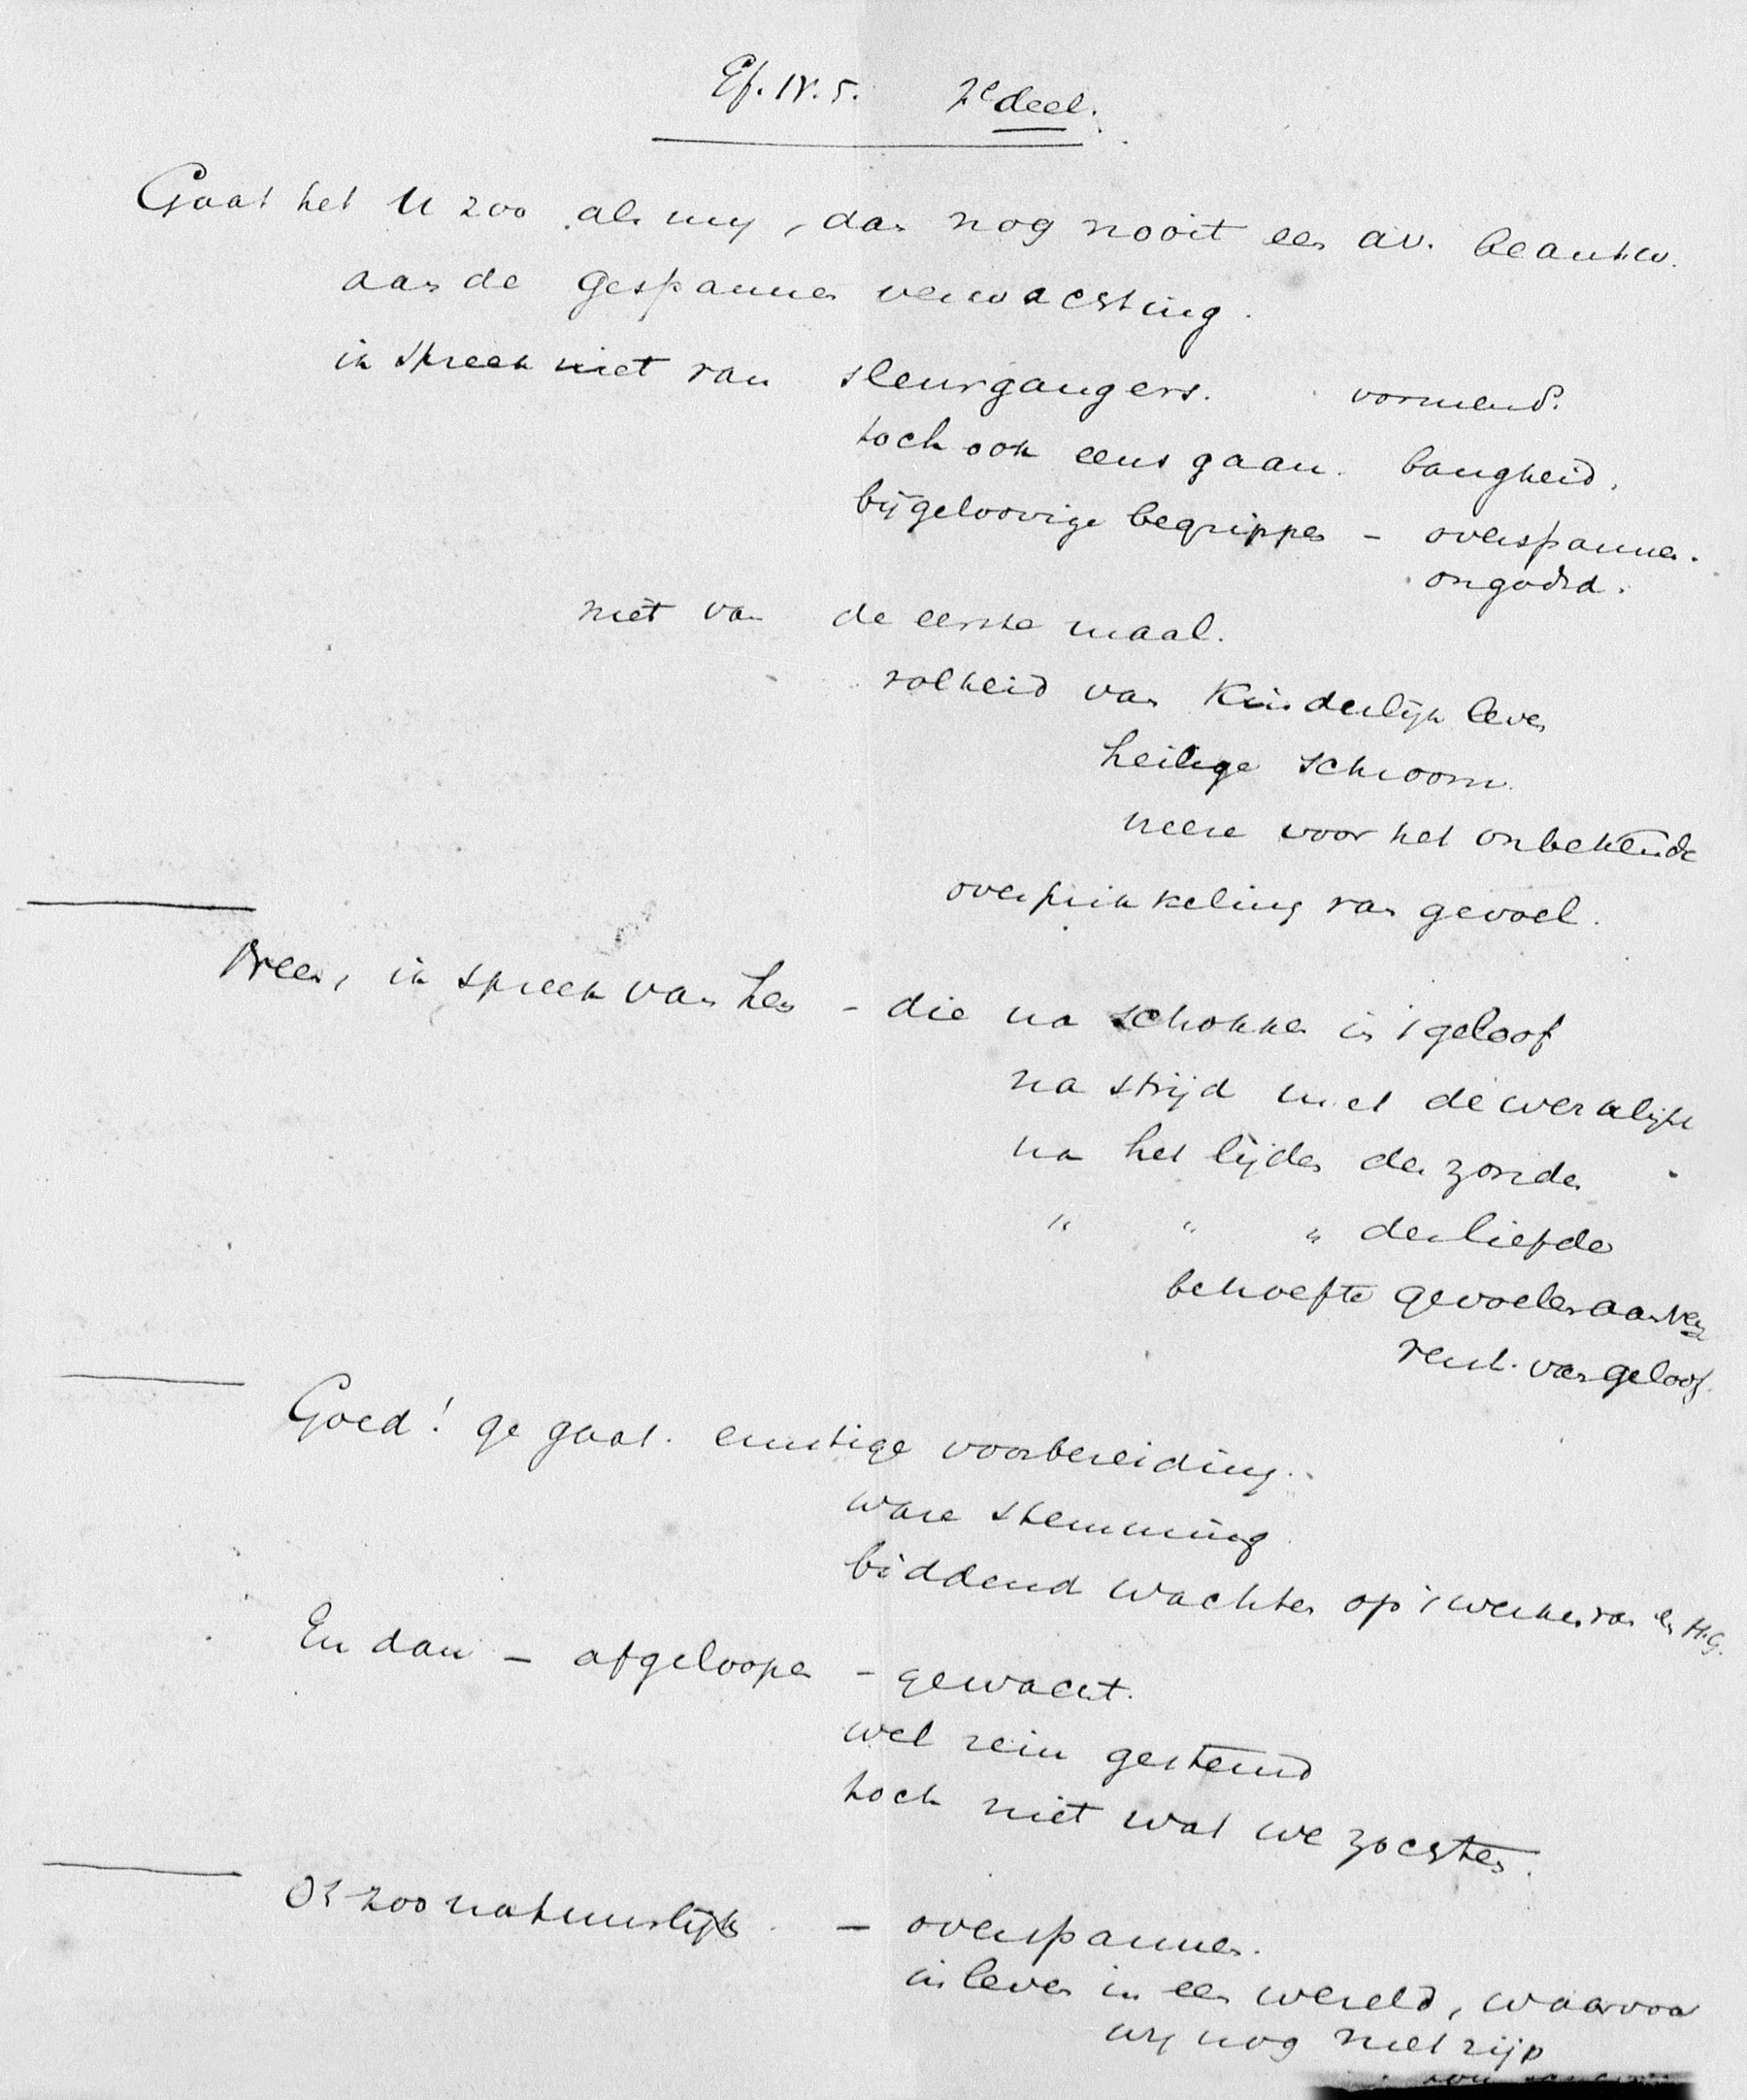 Ef. IV. 5. 2e deel.
Gaat het U zoo als mij, dan nog nooit een av. beantw.
aan de gespannen verwachting.
ik spreek niet van sleurgangers. vormend.
toch ook eens gaan. bangheid.
bijgeloovige begrippen - overspannen.
ongodsd.
niet van de eerste maal.
volheid van Kinderlijk leven
heilige schroom
vreeze voor het onbekende
overprikkeling van gevoel.
Neen, ik spreek van hen - die na schokken in 't geloof
na strijd met de werklijkh
na het lijden der zonde
" " " der liefde
behoefte gevoelen aan
van geloof.
Goed! ge gaat. ernstige voorbereiding.
ware stemming
biddend wachten op 't werken van den H.G.
En dan - afgeloopen - gewacht.
wel rein gestemd
toch niet wat we zochten.
O! zoo natuurlijk - overspannen.
in leven in een wereld, waarvoor
wij nog niet rijp